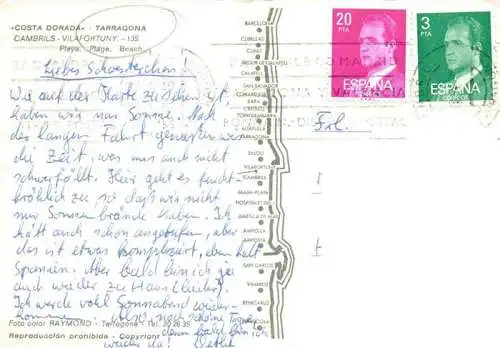 «COSTA DORADA» - TARRAGONA
CAMBRILS - VILAFORTUNY. - 135
Playa. Plage. Beach.
Liebes Schwesterchen!
Wie auf der Karte zu sehen ist,
haben wir nur Sonne. Nach
der langen Fahrt genießen wir
die Zeit, was man auch nicht
schwerfällt. Hier geht es feucht-
fröhlich zu so daß wir nicht
nur Sonnenbrände haben. Ich
hätt auch schon angerufen, aber
das ist etwas kompliziert, eben halt
Spanien. Aber bald bin ich ja
auch wieder zu Haus (leider).
Ich werde wohl Sonnabend wieder-
kommen. Also noch schöne Tage
denn bald bin ich
wieder da!
Foto color RAYMOND - Tarragona - Tel.
Reproducción prohibida -
BARCELO
CUBELLAS
CUNIT
CALAFELL
SAN SALVADOR
TORREDEMBARRA
ALTAFULLA
TARRAGONA
SALOU
VILAFORTUNY
CAMBRILS
MIAMI-PLAYA
HOSPITALET
AMETLLA DE MAR
AMPOLLA
AMPOSTA
SAN CARLOS
VINAROZ
BENICARLO
20
PTA
ESPAÑA
3
PTA
ESPAÑA
CORREOS
MADRID
VALENCIA
Frl.